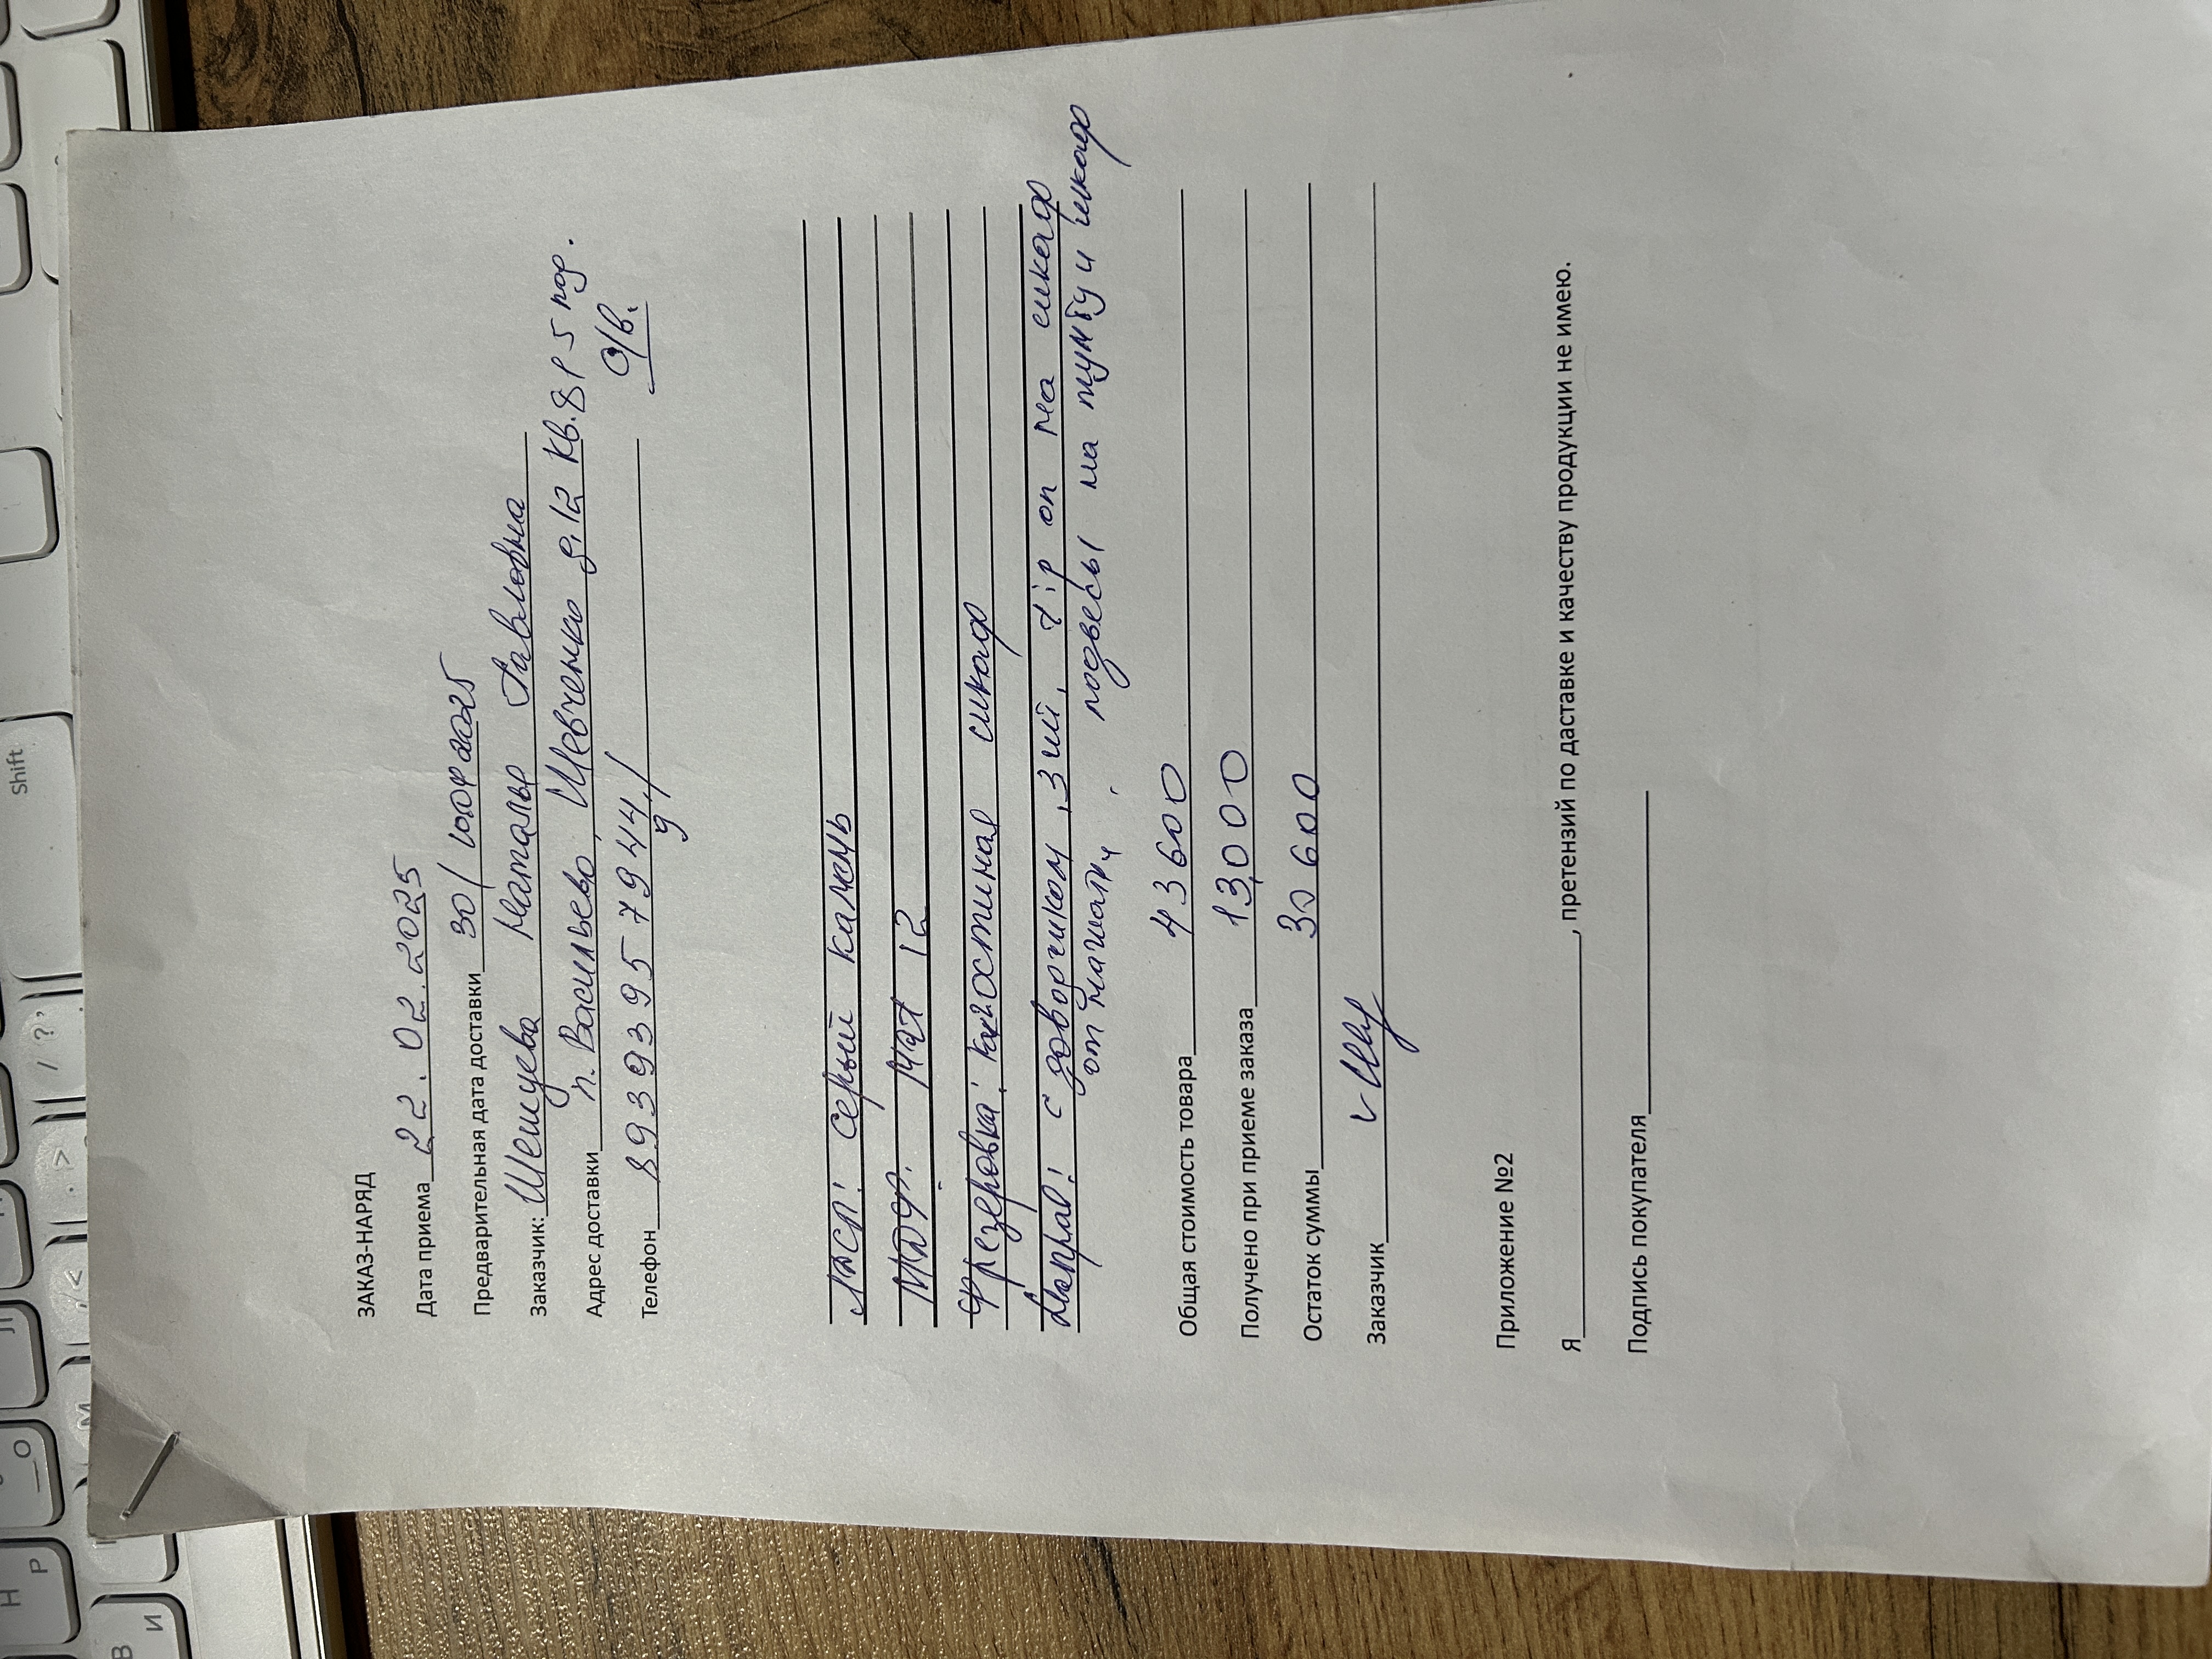 Shift
ЗАКАЗ-НАРЯД
Дата приема 22.02.2025
Предварительная дата доставки 30/ 10.04 2025
Заказчик: Шешуева Наталья Павловна
Адрес доставки п. Васильево, Шевченко д.12 Кв.81 5 под.
Телефон 89393957944 /
9
О/в.
ЛДСП: серый камень
МДФ: Мат 12
Фрезеровка: как гостиная шкаф
Направ: с доводчиком, 3 шт, tip on на шкаф
подвесы на тумбу и шкаф
Общая стоимость товара 43600
Получено при приеме заказа 13,000
Остаток суммы 30 600
Заказчик
Приложение №2
Я , претензий по даставке и качеству продукции не имею.
Подпись покупателя